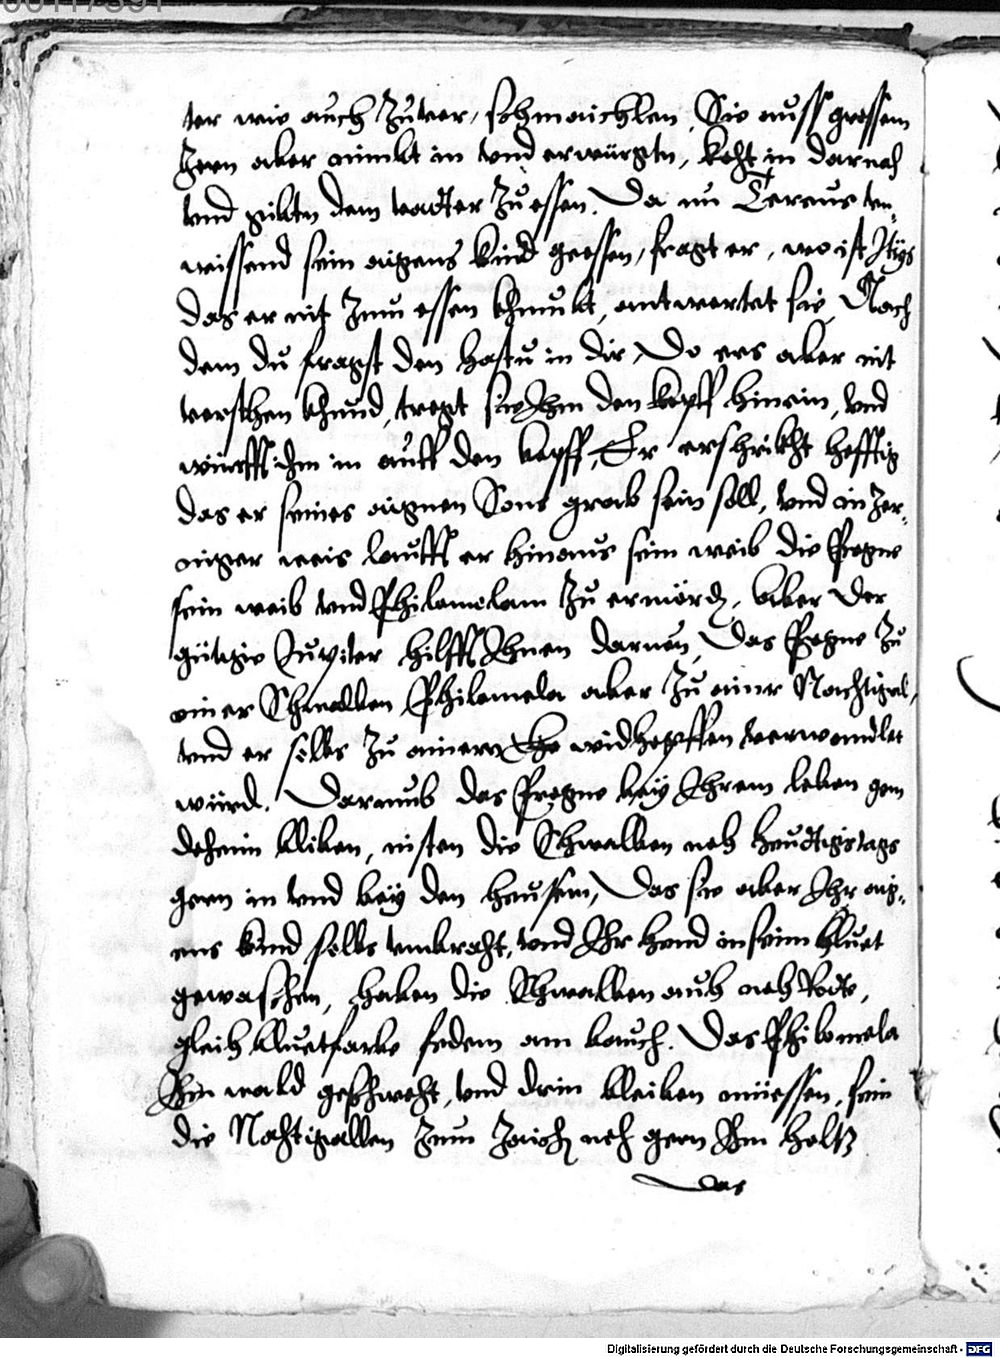 ter wie auch zuver, schmaichlen, Sie auss grossem
Zern aber nimbt in vnd erwürgtn, kocht in darnach
vnd gibtn dem vadter zu essen. Da nu Tereus vn-
wissend sein aigens kind geessen, fragt er, wo ist Itÿs
das er nit zum essen khumbt, antwortet sie, Nach
dem du fragst den hastu in dir, Do ers aber nit
versthen khund, tregt sie Ihm den kopff hinein, vnd
würfft ihm in auff den kopff, Er erschrikht hefftig
das er seines aigmen Sons grab sein soll, vnd in Zer-
niger weis laufft er hinaus sein weib die Progne
sein weib vnd Philomelam zu ermörd, Aber der
gütige Jupiter hilfft Ihnen darnon, Das Progne zu
einer Schwalben Philomela aber zu ainr Nachtigal,
vnd er selbs zu ainem widhopffen verwandlet
würd. Darumb das Progne beÿ Ihrem leben gern
doheim bliben, nisten die Schwalben noch heudtigs tags
gern in vnd beÿ den heusern, Das sie aber Ihr aig-
ens kind selbs vmbracht, vnd Ihr hend in seim bluet
gewaschen, haben die Schwalben auch noch Rodte,
gleich bluetfarbe federn am bauch. Das Philomela
Im wald geschwecht, vnd drin bleiben müessen, sein
die Nachtigallen zum zaich noch gern Im holtz
das
Digitalisierung gefördert durch die Deutsche Forschungsgemeinschaft - DFG